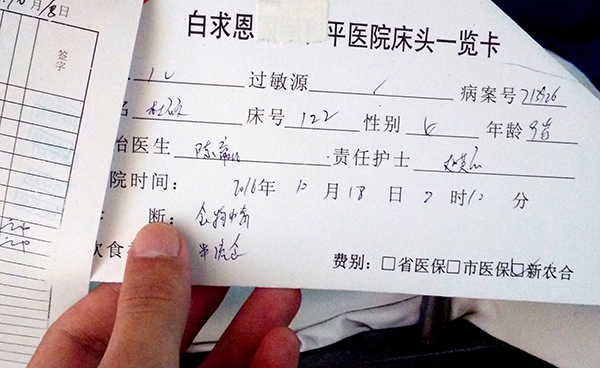 月18日
签字
白求恩 平医院床头一览卡
过敏源 / 病案号 713926
名 床号 122 性别 女 年龄 9岁
治医生 陈 责任护士
院时间: 2016年 10月 18日 时10分
断: 食物中毒
饮食 半流食
费别: □省医保□市医保☑新农合